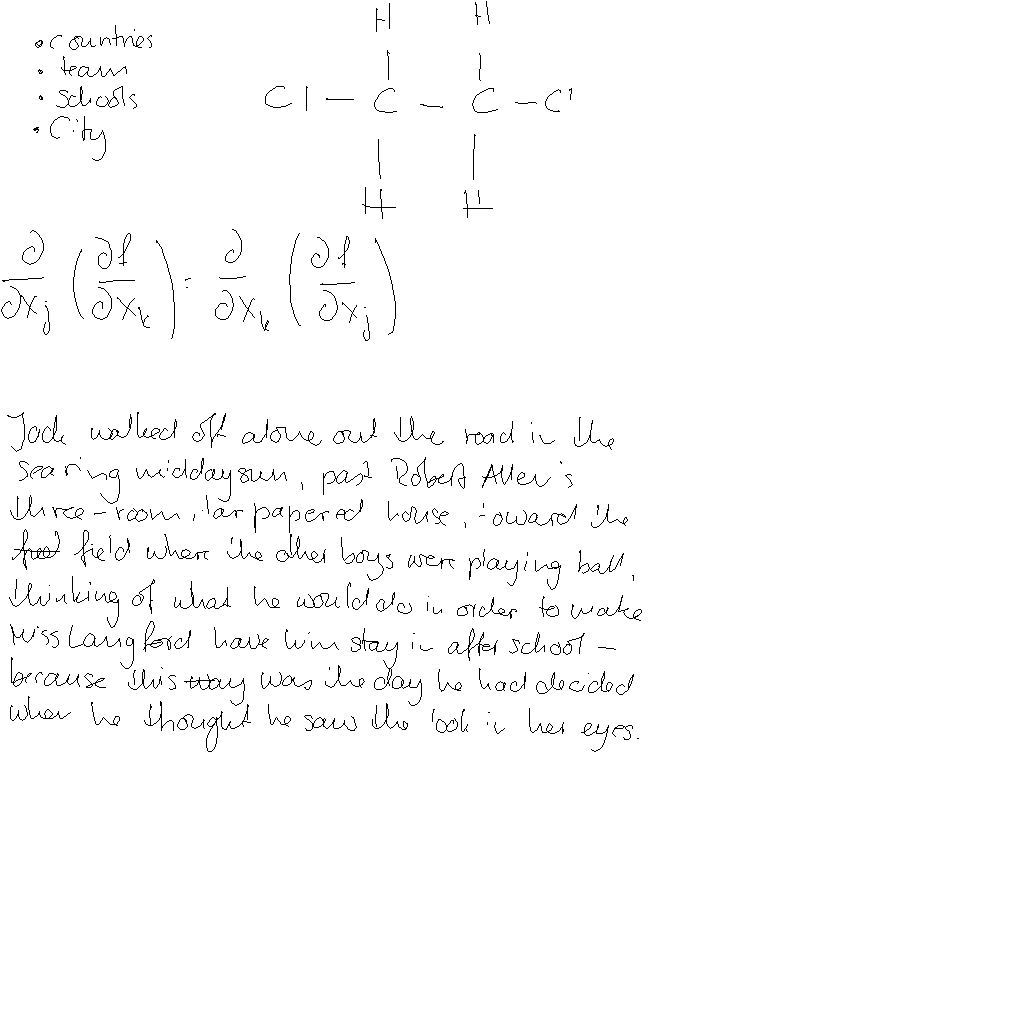 • countries
• team
• schools
• City
H H
Cl — C — C — Cl
H H
∂/∂xⱼ (∂f/∂xₖ) = ∂/∂xₖ (∂f/∂xⱼ)
Jack walked off alone out the road in the
searing midday sun, past Robert Allen's
three-room, tarpapered house, toward the
field where the other boys were playing ball,
thinking of what he would do in order to make
Miss Langford have him stay in after school —
because this was the day he had decided
when he thought he saw the look in her eyes.